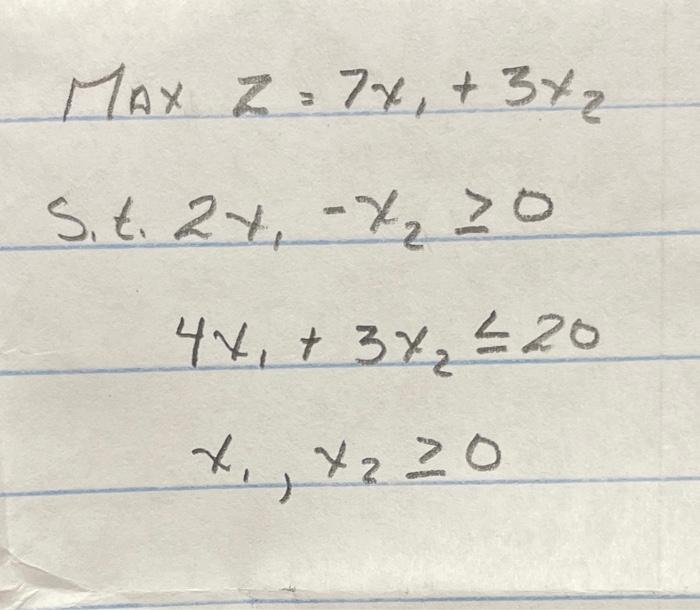 Max Z = 7x₁ + 3x₂
S.t. 2x₁ - x₂ ≥ 0
4x₁ + 3x₂ ≤ 20
x₁, x₂ ≥ 0